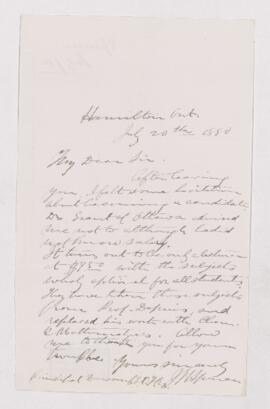 Hamilton Ont.
July 20th 1880
My Dear Sir.
After leaving
you, I felt some hesitation
about becoming a candidate
Dr Grant of Ottawa advised
me not to although had a
It turns out to be only a lecture
at $750 with the subjects
wholly optional for all students.
They have taken these subjects
from Prof. and
replaced his work with them
& Mathematics. Allow
me to thank you for your
trouble. Yours sincerely
Principal Dawson